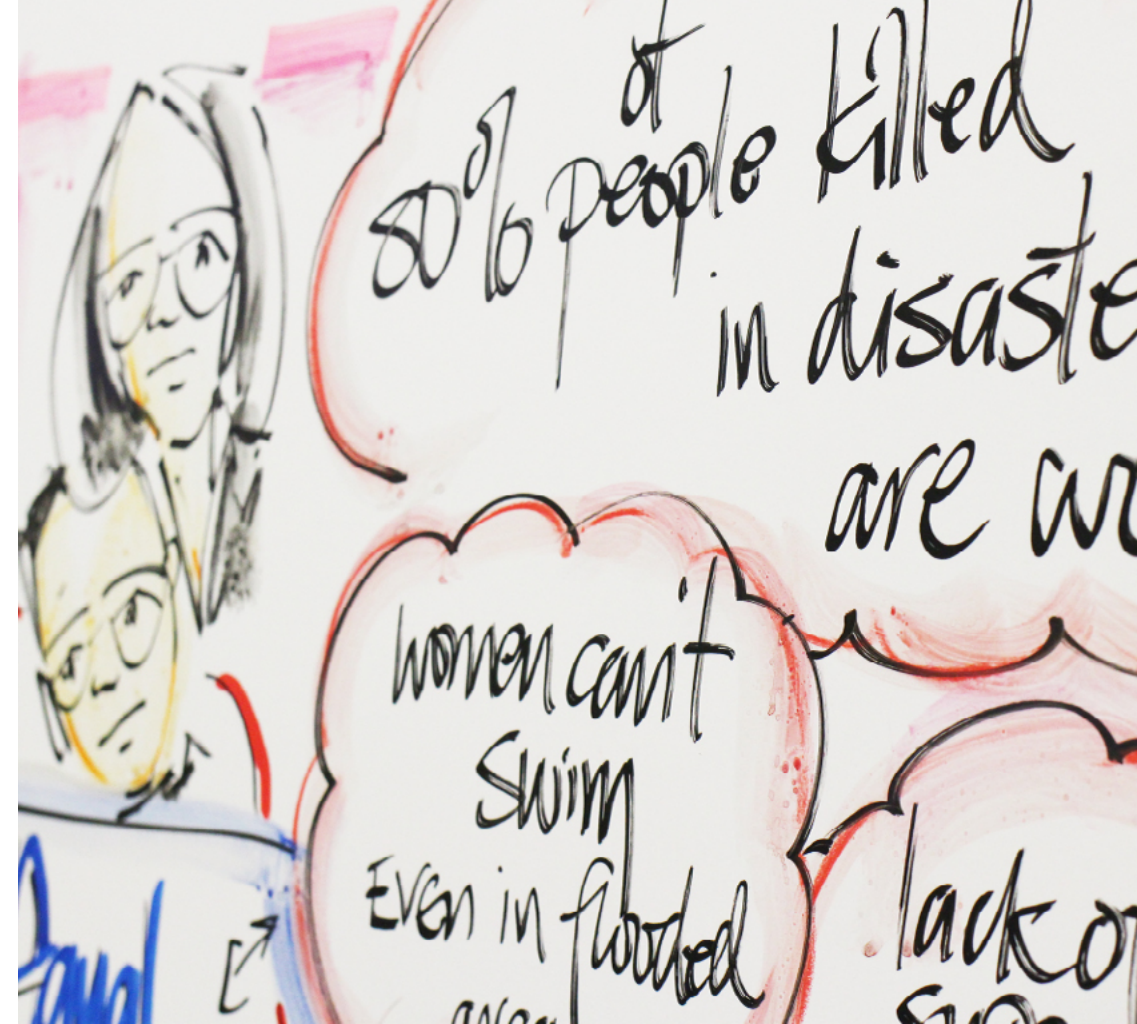 80% of people killed
in disaste
are wo
women can't
swim
Even in flooded
areas
lack of
supp
Equal